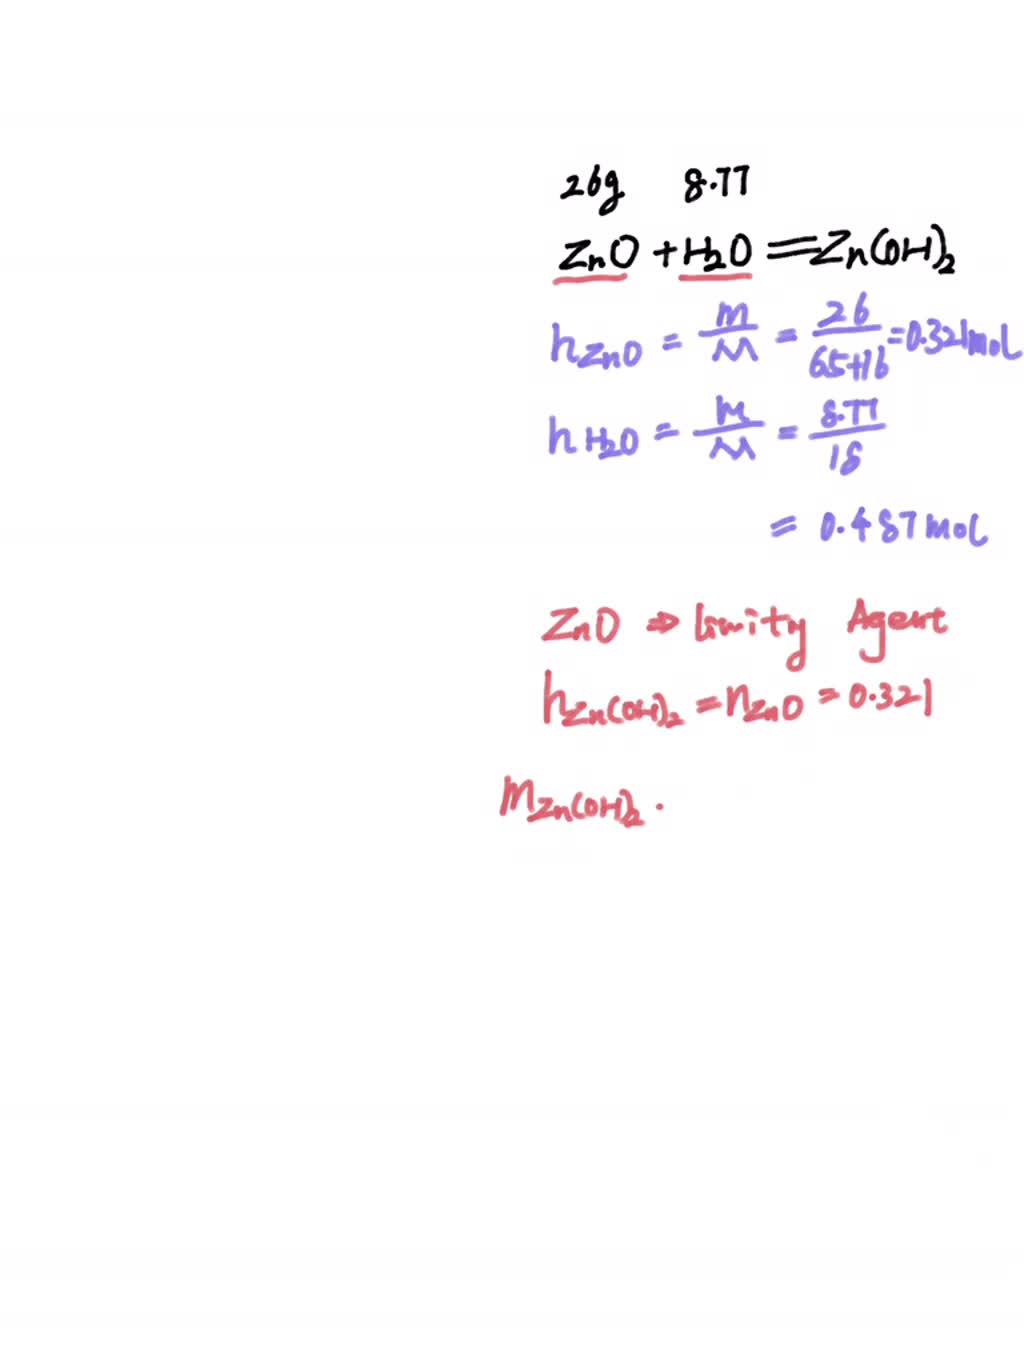 26g 8.77
ZnO + H₂O = Zn(OH)₂
nZnO = m/M = 26/65+16 = 0.321mol
nH₂O = m/M = 8.77/18
= 0.487mol
ZnO ⇒ limity Agent
nZn(OH)₂ = nZnO = 0.321
mZn(OH)₂ .